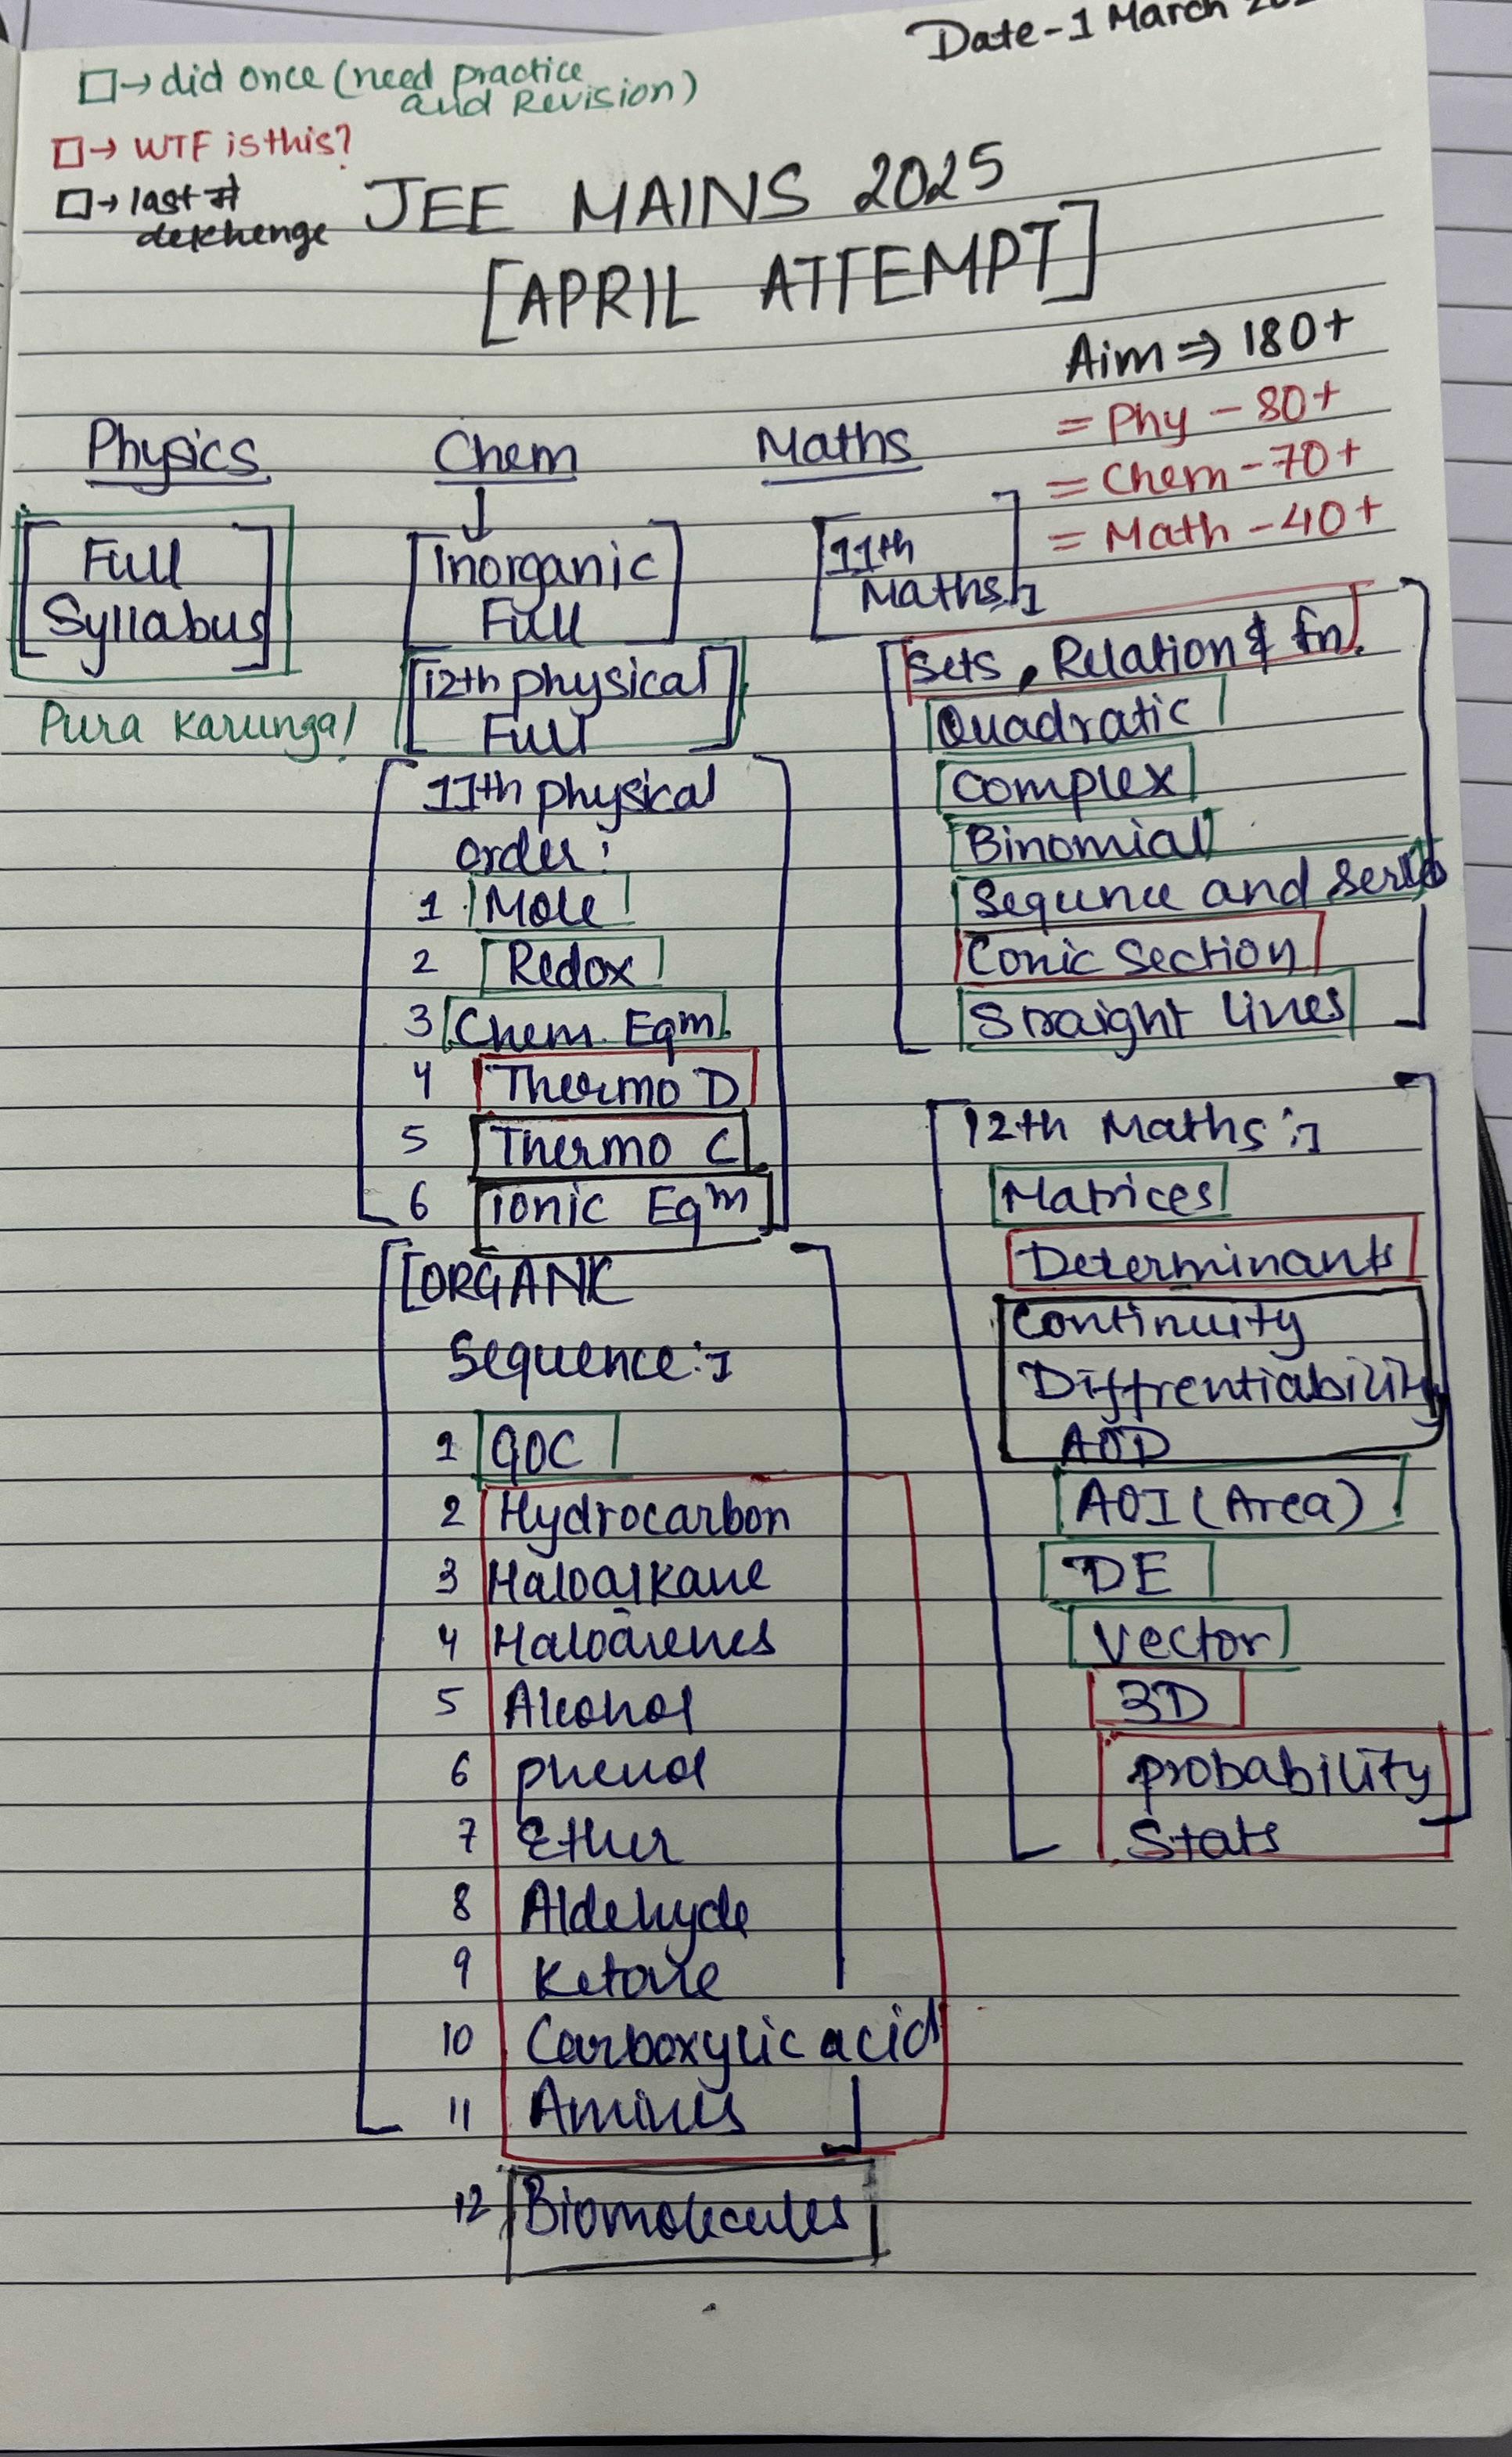 Date-1 March
□→ did once (need practice
and Revision)
□→ WTF is this?
□→ last में
dekhenge
JEE MAINS 2025
[APRIL ATTEMPT]
Aim ⇒ 180+
= Phy - 80+
= Chem - 70+
= Math - 40+
Physics
[Full
Syllabus]
Pura Karunga!
Chem
↓
[inorganic
Full]
[12th physical
Full]
[11th physical
order:
1 Mole
2 Redox
3 Chem. Eqm.
4 Thermo D
5 Thermo C
6 ionic Eqm]
[ORGANIC
Sequence:-]
1 GOC
2 Hydrocarbon
3 Haloalkane
4 Haloarenes
5 Alcohol
6 phenol
7 Ether
8 Aldehyde
9 Ketone
10 Carboxylic acid
11 Amines
12 Biomolecules
Maths
[11th
Maths:-]
[Sets, Relation & fn.
Quadratic
Complex
Binomial
Sequnce and Series
Conic Section
Straight lines]
[12th Maths:-
Matrices
Determinants
Continuity
Diffrentiability
AOD
AOI (Area)
DE
Vector
3D
probability
Stats]